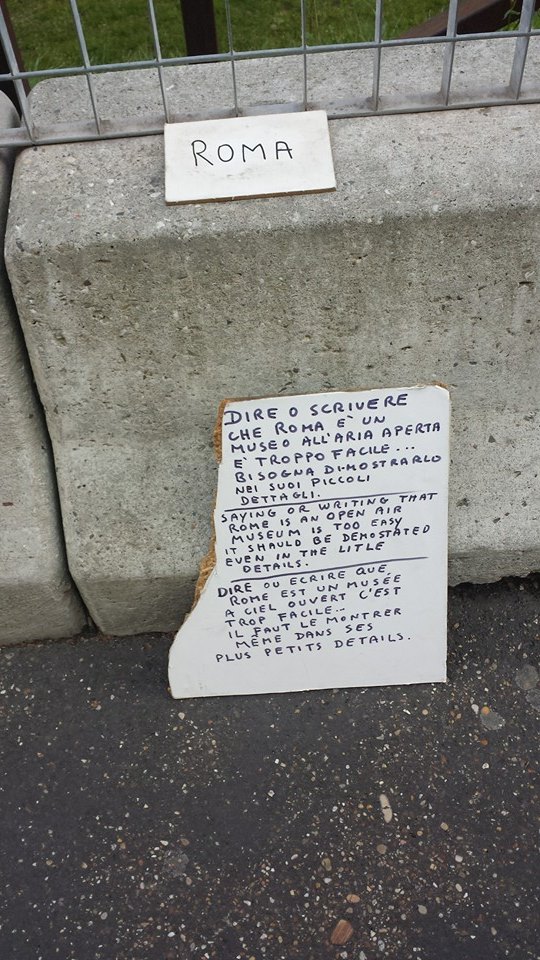 ROMA
DIRE O SCRIVERE
CHE ROMA E' UN
MUSEO ALL'ARIA APERTA
E' TROPPO FACILE...
BISOGNA DIMOSTRARLO
NEI SUOI PICCOLI
DETTAGLI.
SAYING OR WRITING THAT
ROME IS AN OPEN AIR
MUSEUM IS TOO EASY
IT SHAULD BE DEMOSTATED
EVEN IN THE LITLE
DETAILS.
DIRE OU ECRIRE QUE
ROME EST UN MUSÉE
A CIEL OUVERT C'EST
TROP FACILE...
IL FAUT LE MONTRER
MÊME DANS SES
PLUS PETITS DETAILS.